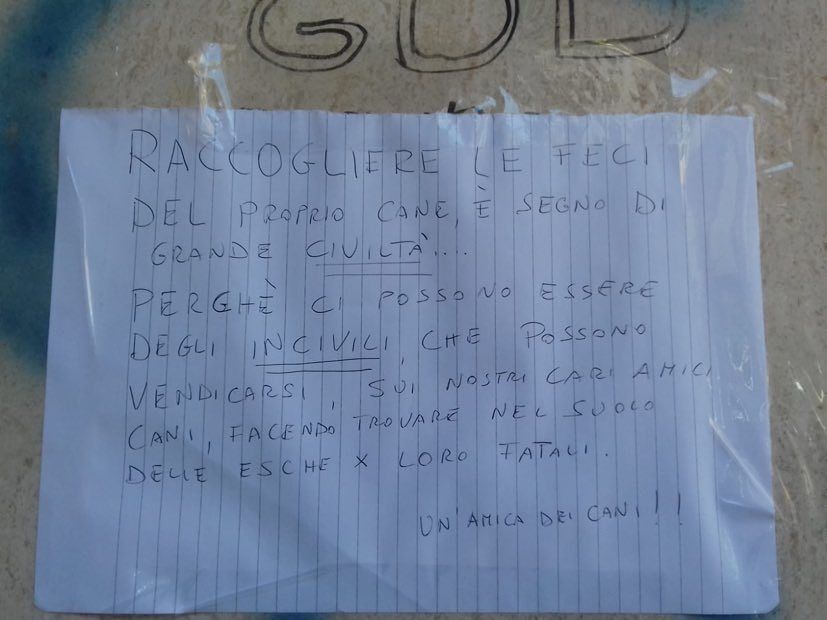 GDB
RACCOGLIERE LE FECI
DEL PROPRIO CANE, È SEGNO DI
GRANDE CIVILTÀ....
PERCHÈ CI POSSONO ESSERE
DEGLI INCIVILI, CHE POSSONO
VENDICARSI, SUI NOSTRI CARI AMICI
CANI, FACENDO TROVARE NEL SUOLO
DELLE ESCHE X LORO FATALI.
UN'AMICA DEI CANI!!